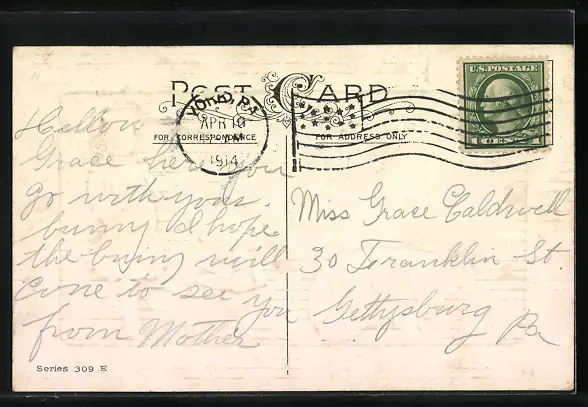 POST CARD
FOR CORRESPONDENCE
FOR ADDRESS ONLY
YORK, PA
APR 10
PM
1914
U.S. POSTAGE
1 CENT 1
Hellow
Grace here you
go with your
bunny I hope
the buiny will
come to see you
from Mother
Miss Grace Caldwell
30 Franklin St.
Gettysburg
Pa
Series 309 E